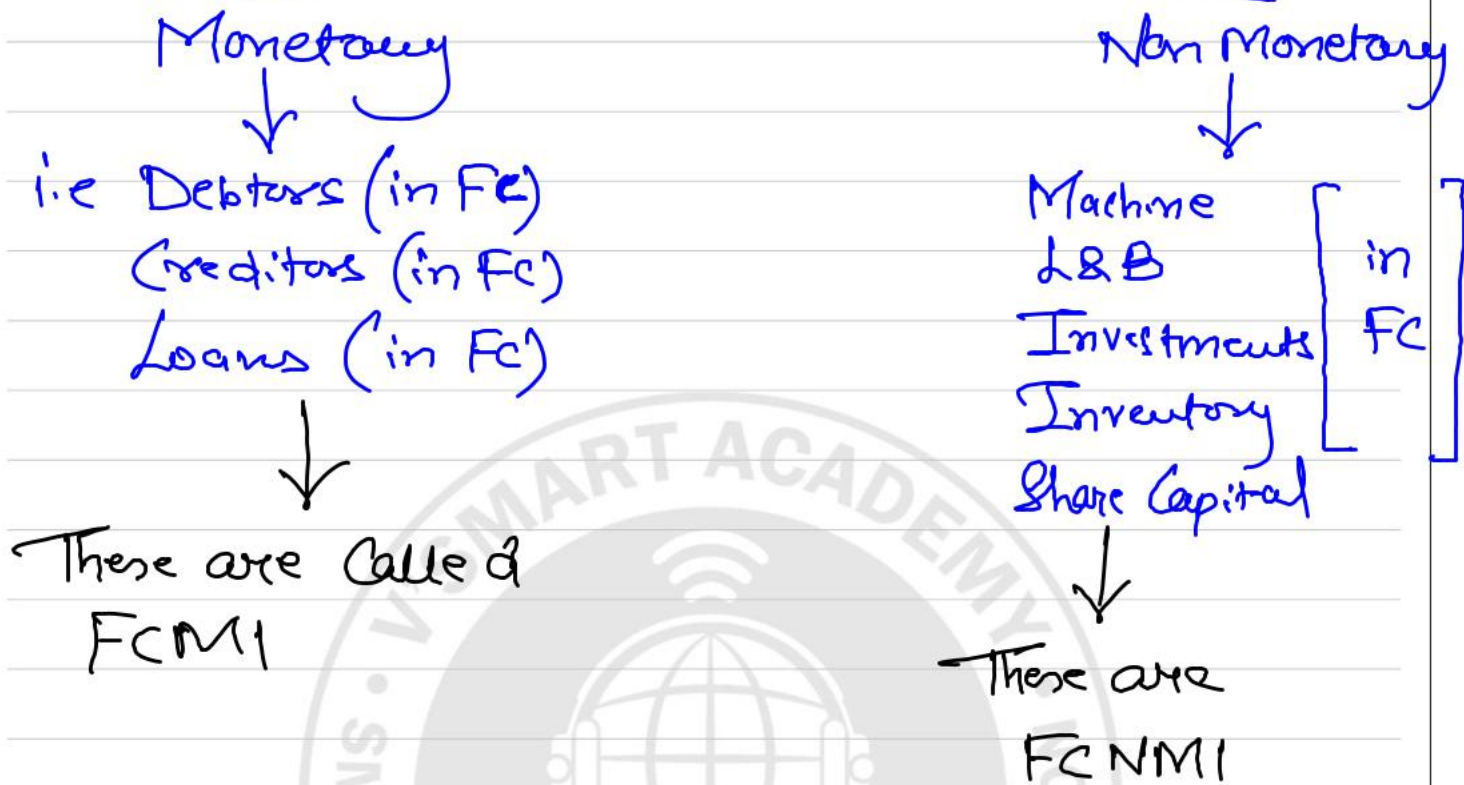 Monetary
i.e Debtors (in FC)
Creditors (in FC)
Loans (in FC)
These are Called
FCMI
Non Monetary
Machine
L&B
Investments
Inventory
[in FC]
Share Capital
These are
FCNMI
V'SMART ACADEMY